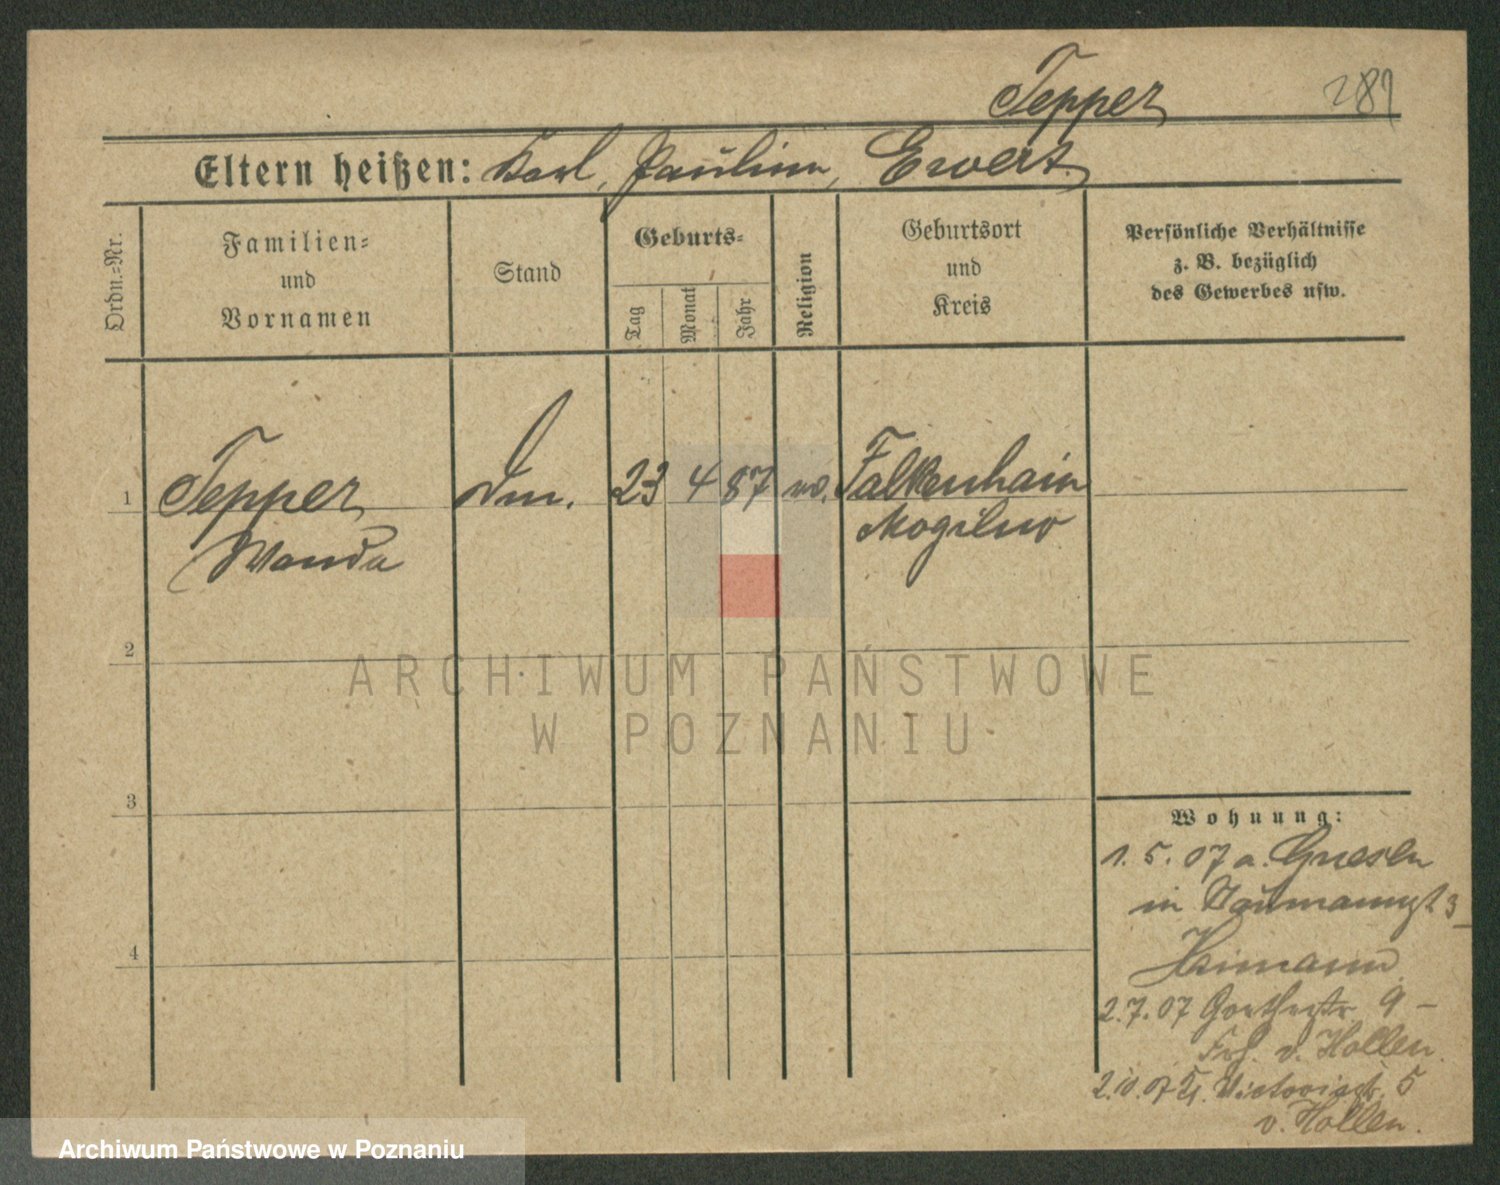 Tepper 289
Eltern heißen: Karl, Paulina, Ewert.
Ordn.-Nr.
Familien-
und
Vornamen
Stand
Geburts-
Tag
Monat
Jahr
Religion
Geburtsort
und
Kreis
Persönliche Verhältnisse
z. B. bezüglich
des Gewerbes usw.
1 Tepper 23 4 87 Falkenhain
Wanda Mogilno
2
ARCHIWUM PAŃSTWOWE
W POZNANIU
3
4
Wohnung:
1. 5. 07 a. Gnesen
in Naumannst 3
Heimann
2.7.07 Goethestr 9 –
Frh. v. Hollen.
2.10.07 Victoriastr. 5
v. Hollen.
Archiwum Państwowe w Poznaniu